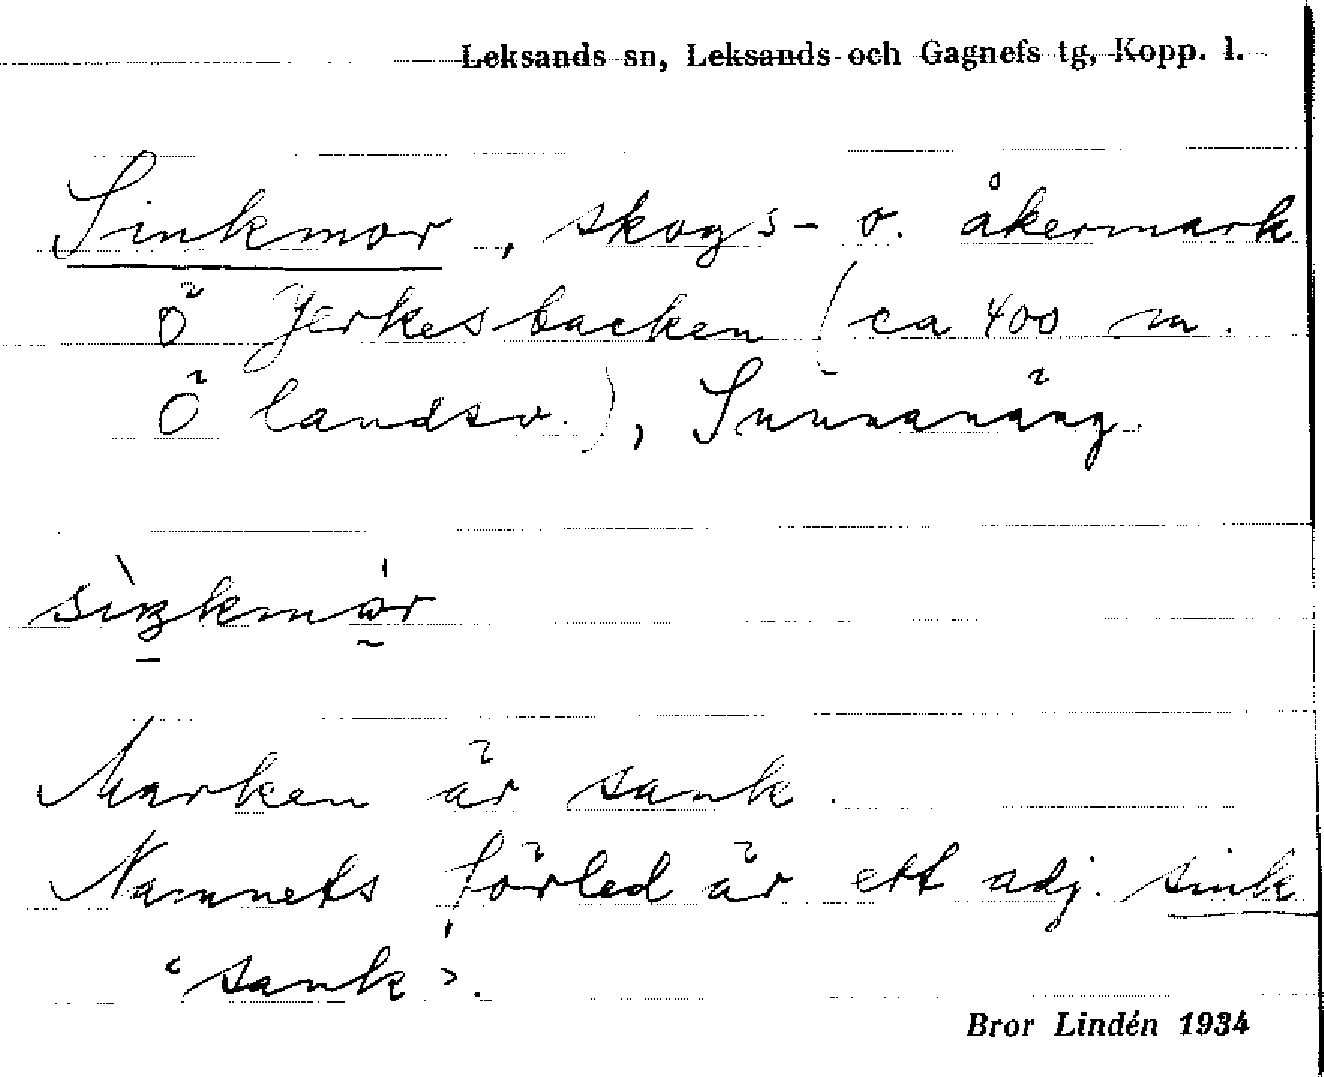 Leksands sn, Leksands och Gagnefs tg, Kopp. l.
Sinkmor, skogs- o. åkermark
Ö Jerkesbacken (ca 400 m.
Ö landsv.), Sunnanäng.
Marken är sank.
Namnets förled är ett adj. sink
‘sank’.
Bror Lindén 1934